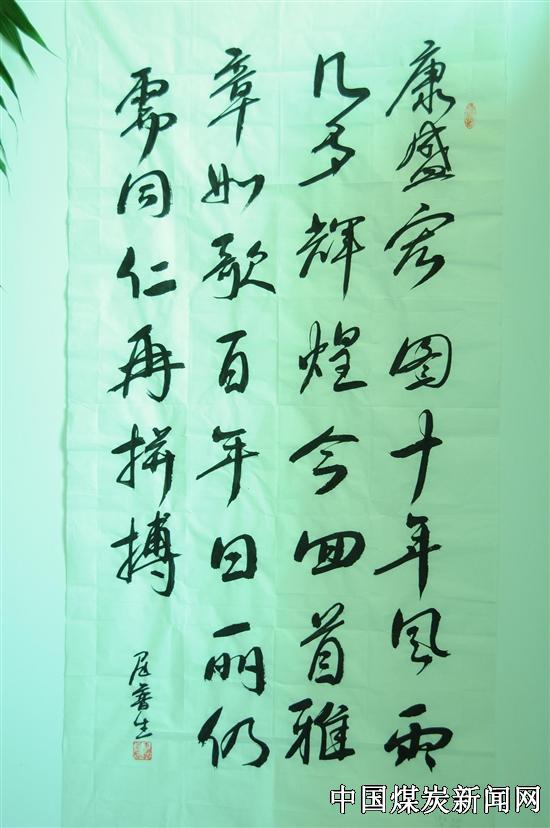 康盛宏图十年风雨
几多辉煌今回首雅
章如歌百年日丽仍
需同仁再拼搏
中国煤炭新闻网